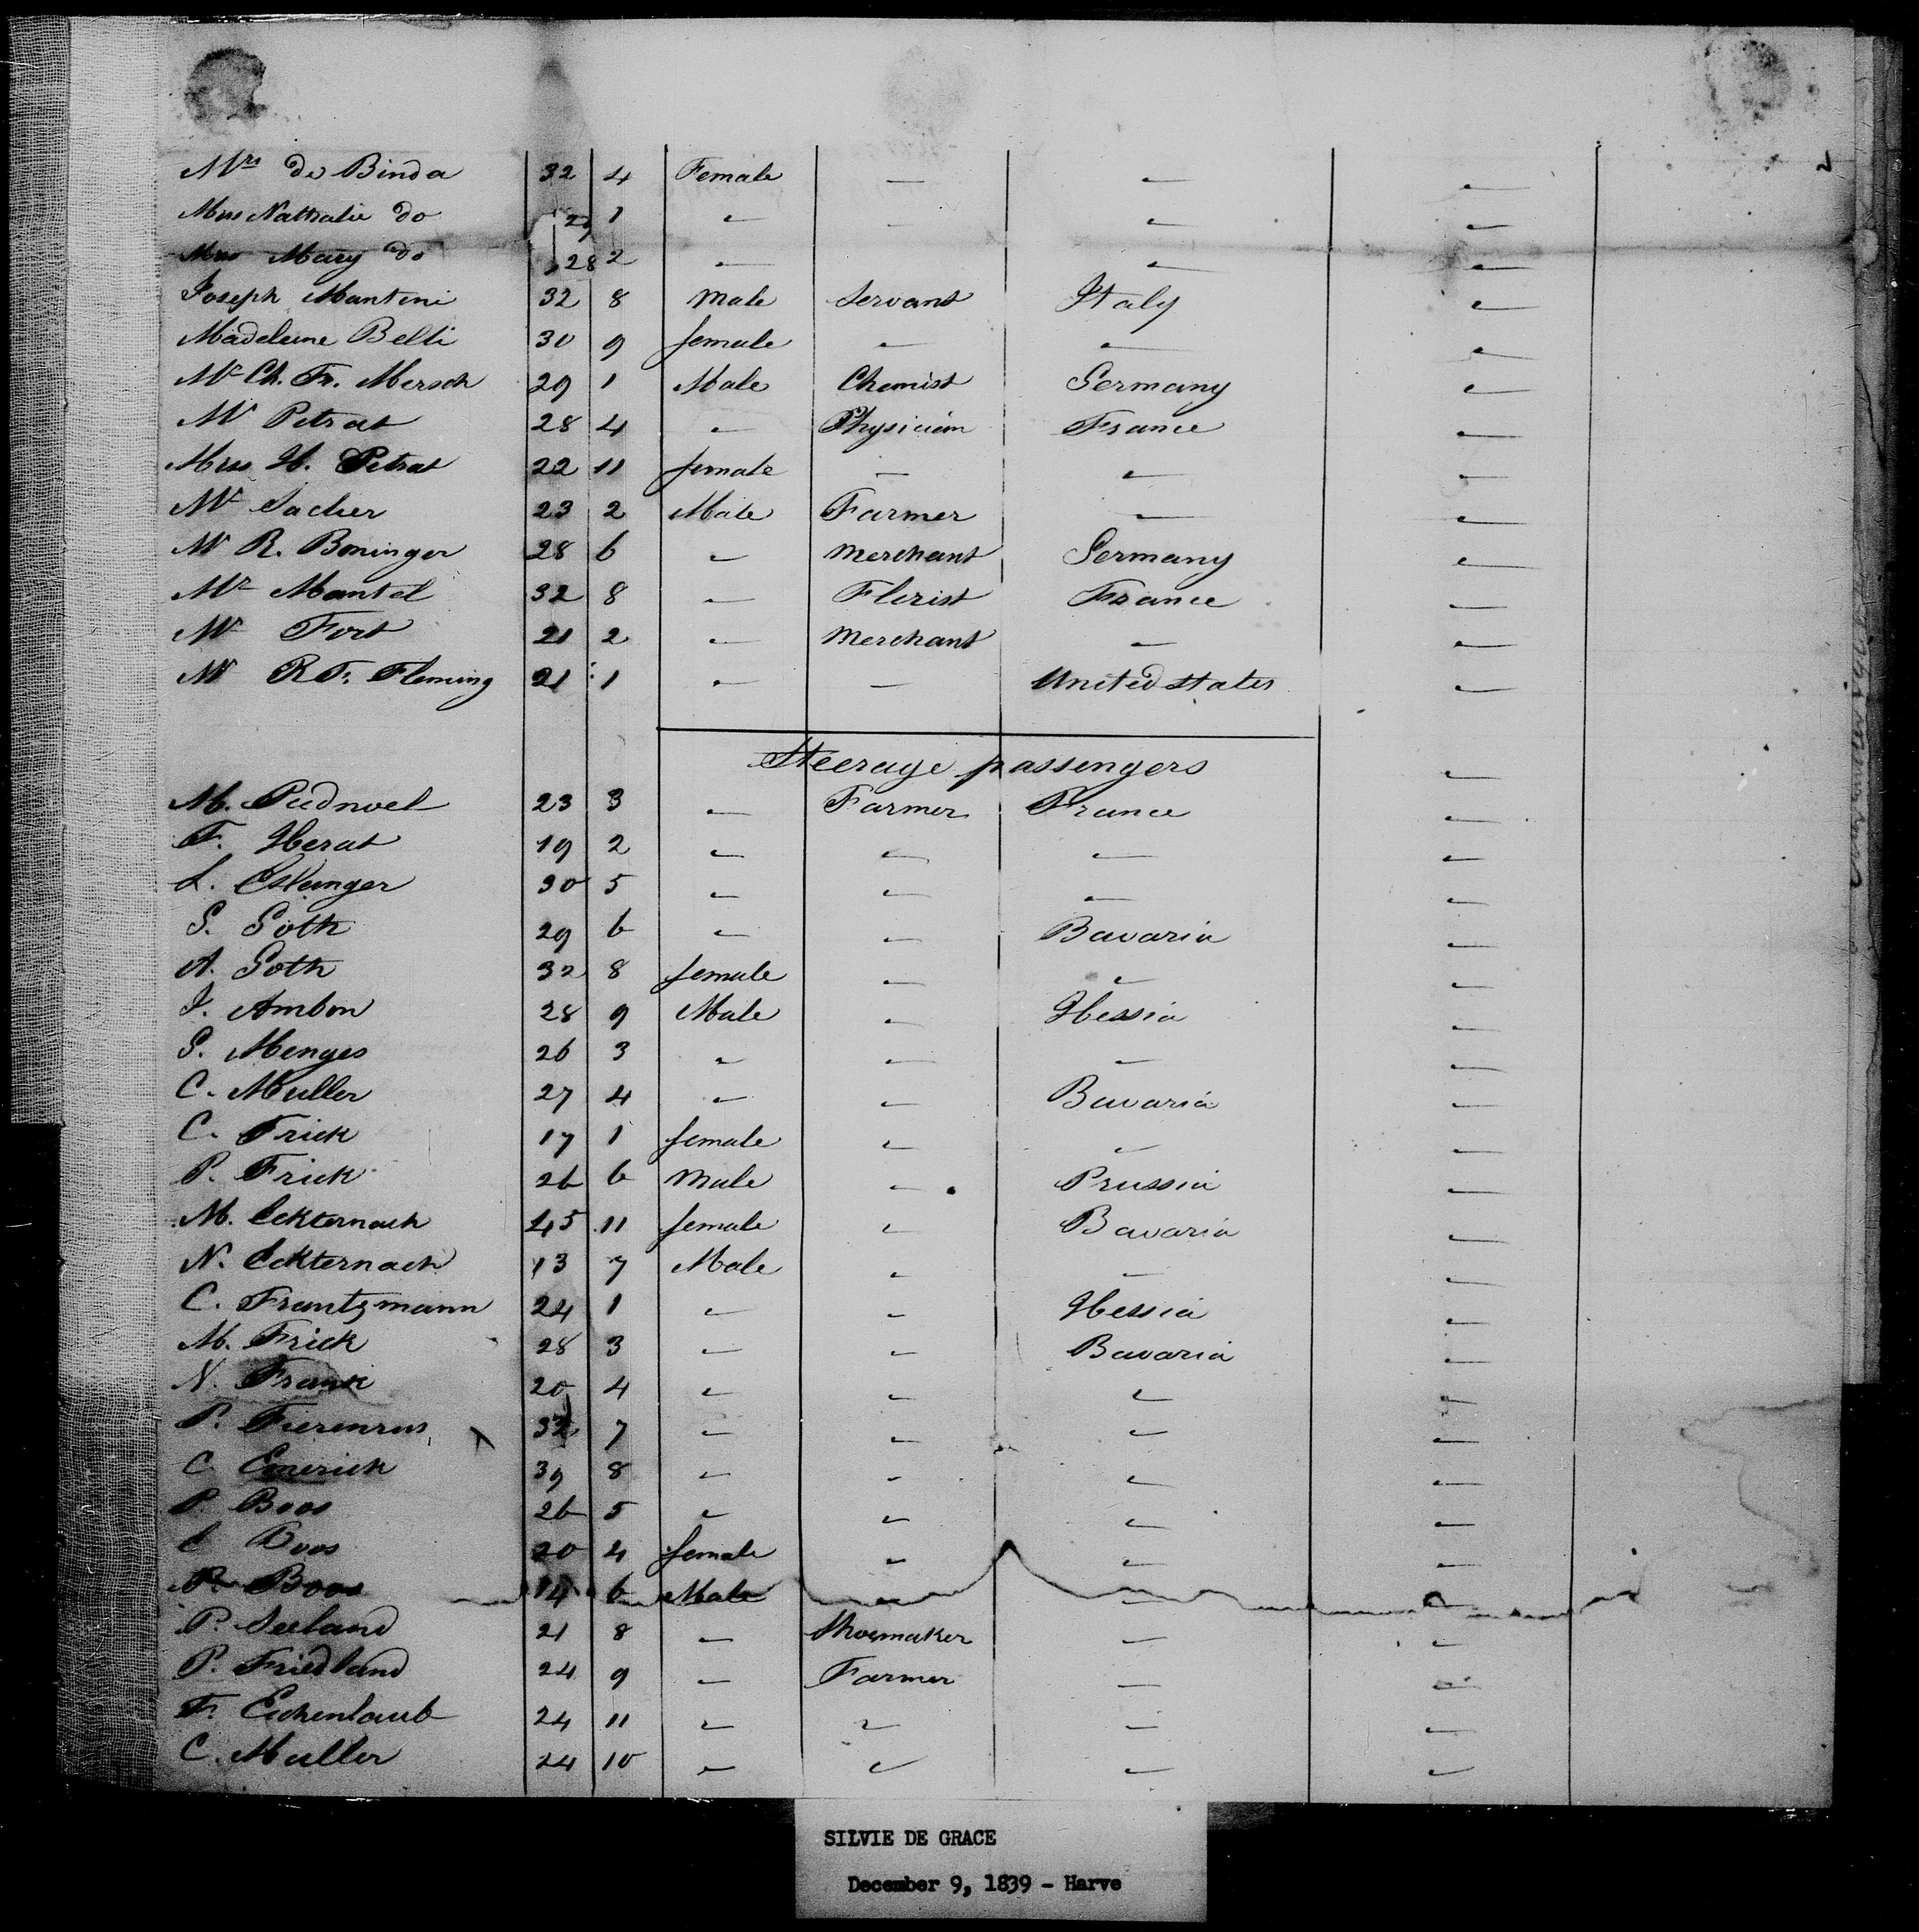 Mrs de Binda 32 4 Female — — —
Miss Nathalie do 29 1 — — — —
Miss Mary do 28 2 — — —
Joseph Mantini 32 8 Male Servant Italy —
Madeleine Belli 30 9 female — — —
Mr Ch. Fr. Mersch 29 1 Male Chemist Germany —
Mr Petrat 28 4 — Physician France —
Mrs H. Petrat 22 11 female — — —
Mr Sacher 23 2 Male Farmer — —
Mr R. Boninger 28 6 — Merchant Germany —
Mr Mantel 32 8 — Florist France —
Mr Fort 21 2 — Merchant — —
Mr R. F. Fleming 21 1 — — United States —
Steerage passengers —
M. Piednoel 23 3 — Farmer France —
F. Herat 19 2 — — — —
L. Eslanger 30 5 — — — —
G. Goth 29 6 — — Bavaria —
A. Goth 32 8 female — — —
J. Ambon 28 9 Male — Hessia —
G. Menges 26 3 — — — —
C. Muller 27 4 — — Bavaria —
C. Frick 17 1 female — — —
P. Frick 26 6 Male — Prussia —
M. Eckternach 45 11 female — Bavaria —
N. Eckternach 13 7 Male — — —
C. Frantzmann 24 1 — — Hessia —
M. Frick 28 3 — — Bavaria —
N. Frank 20 4 — — — —
P. 32 7 — — — —
C. Emerick 39 8 — — — —
P. Boos 26 5 — — — —
C Boos 20 4 female — — —
P. Boos 14 6 Male — — —
P. Seeland 21 8 — Shoemaker — —
P. Friedland 24 9 — Farmer — —
F. Eichenlaub 24 11 — — — —
C. Muller 24 10 — — — —
SILVIE DE GRACE
December 9, 1839 - Harve